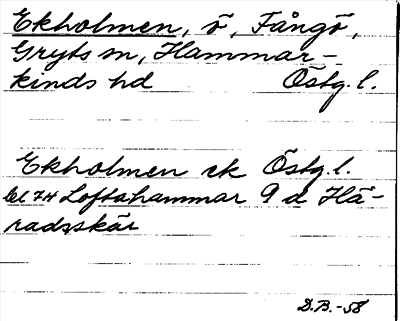 Ekholmen, ö, Fångö,
Gryts sn, Hammar-
kinds hd Östg. l.
Ekholmen ek Östg. l.
bl 74 Loftahammar 9 d Hä-
radsskär
D.B.-58